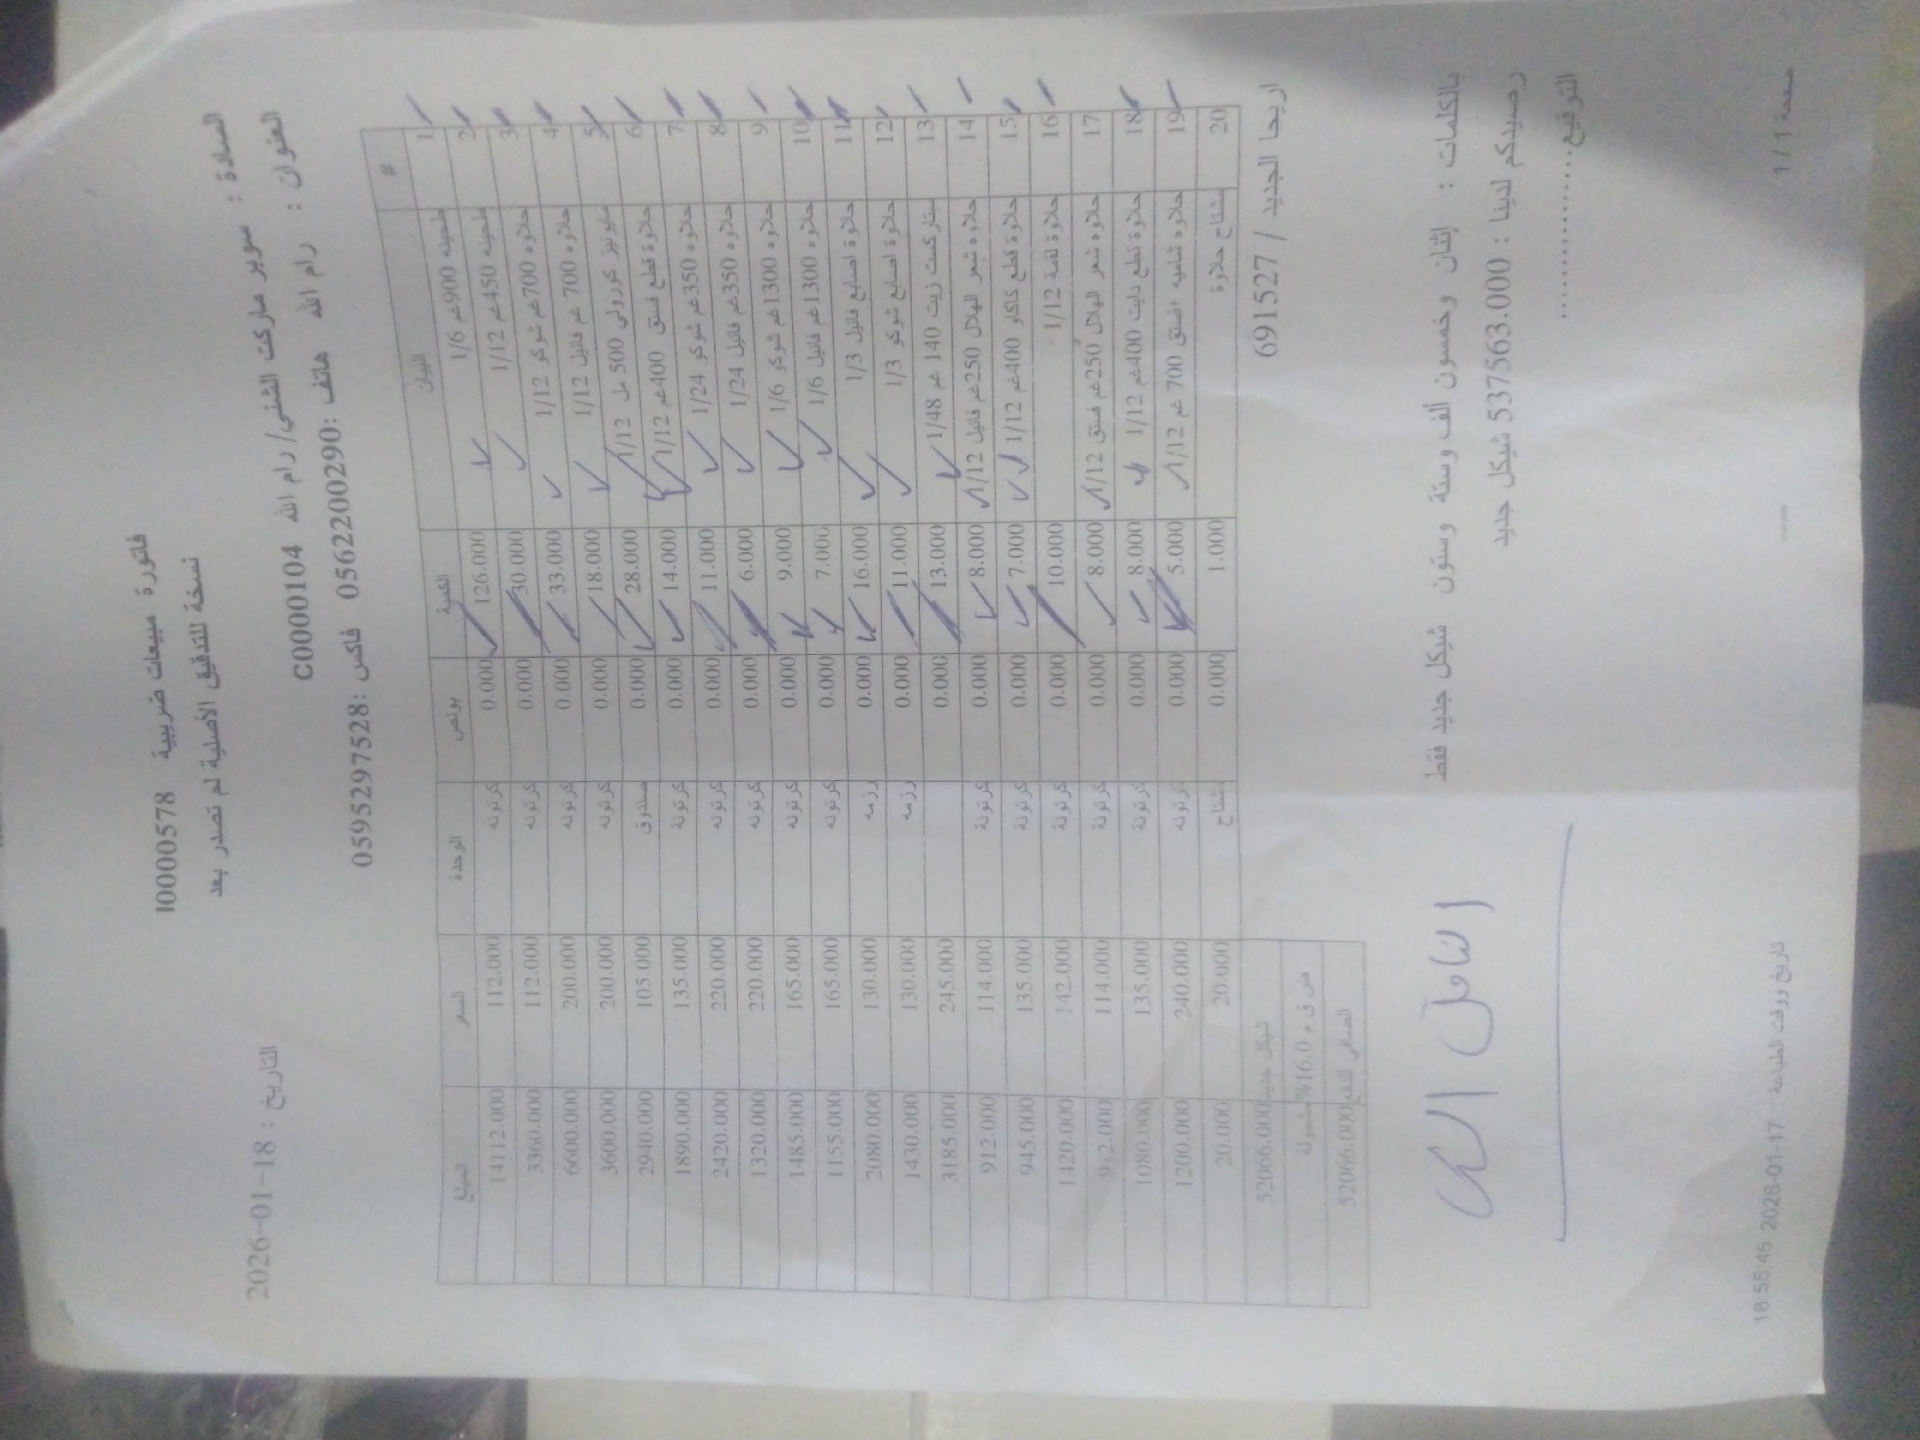 فاتورة مبيعات ضريبية I0000578
نسخة للتدقيق الأصلية لم تصدر بعد
السادة : سوبر ماركت الشني/ رام الله C0000104 التاريخ : 2026-01-18
العنوان : رام الله هاتف :0562200290 فاكس :0595297528
# البيان الكمية بونص الوحدة السعر المبلغ
1 طحينه 900غم 1/6 126.000 0.000 كرتونه 112.000 14112.000
2 طحينه 450غم 1/12 30.000 0.000 كرتونه 112.000 3360.000
3 حلاوه 700غم شوكو 1/12 33.000 0.000 كرتونه 200.000 6600.000
4 حلاوه 700 غم فانيل 1/12 18.000 0.000 كرتونه 200.000 3600.000
5 مايونيز كورولي 500 مل 1/12 28.000 0.000 صندوق 105.000 2940.000
6 حلاوة قطع فستق 400غم 1/12 14.000 0.000 كرتونة 135.000 1890.000
7 حلاوه 350غم شوكو 1/24 11.000 0.000 كرتونه 220.000 2420.000
8 حلاوه 350غم فانيل 1/24 6.000 0.000 كرتونه 220.000 1320.000
9 حلاوه 1300غم شوكو 1/6 9.000 0.000 كرتونه 165.000 1485.000
10 حلاوه 1300غم فانيل 1/6 7.000 0.000 كرتونه 165.000 1155.000
11 حلاوة اصابع فانيل 1/3 16.000 0.000 رزمه 130.000 2080.000
12 حلاوة اصابع شوكو 1/3 11.000 0.000 رزمه 130.000 1430.000
13 ستاركست زيت 140 غم 1/48 13.000 0.000 245.000 3185.000
14 حلاوه شعر الهلال 250غم فانيل 1/12 8.000 0.000 كرتونة 114.000 912.000
15 حلاوة قطع كاكاو 400غم 1/12 7.000 0.000 كرتونة 135.000 945.000
16 حلاوة لقمة 1/12 10.000 0.000 كرتونة 142.000 1420.000
17 حلاوه شعر الهلال 250غم فستق 1/12 8.000 0.000 كرتونة 114.000 912.000
18 حلاوة قطع دايت 400غم 1/12 8.000 0.000 كرتونة 135.000 1080.000
19 حلاوه شاميه افستق 700 غم 1/12 5.000 0.000 كرتونه 240.000 1200.000
20 مشتاح حلاوة 1.000 0.000 مشتاح 20.000 20.000
اريحا الجديد / 691527 شيكل جديد 52066.000
ض ق م 16.0% مشمولة
الصافي للدفع 52066.000
بالكلمات : إثنان وخمسون ألف وستة وستون شيكل جديد فقط
رصيدكم لدينا : 537563.000 شيكل جديد
التوقيع
صفحة 1 / 1 تاريخ ووقت الطباعة : 2026-01-17 18:55:45